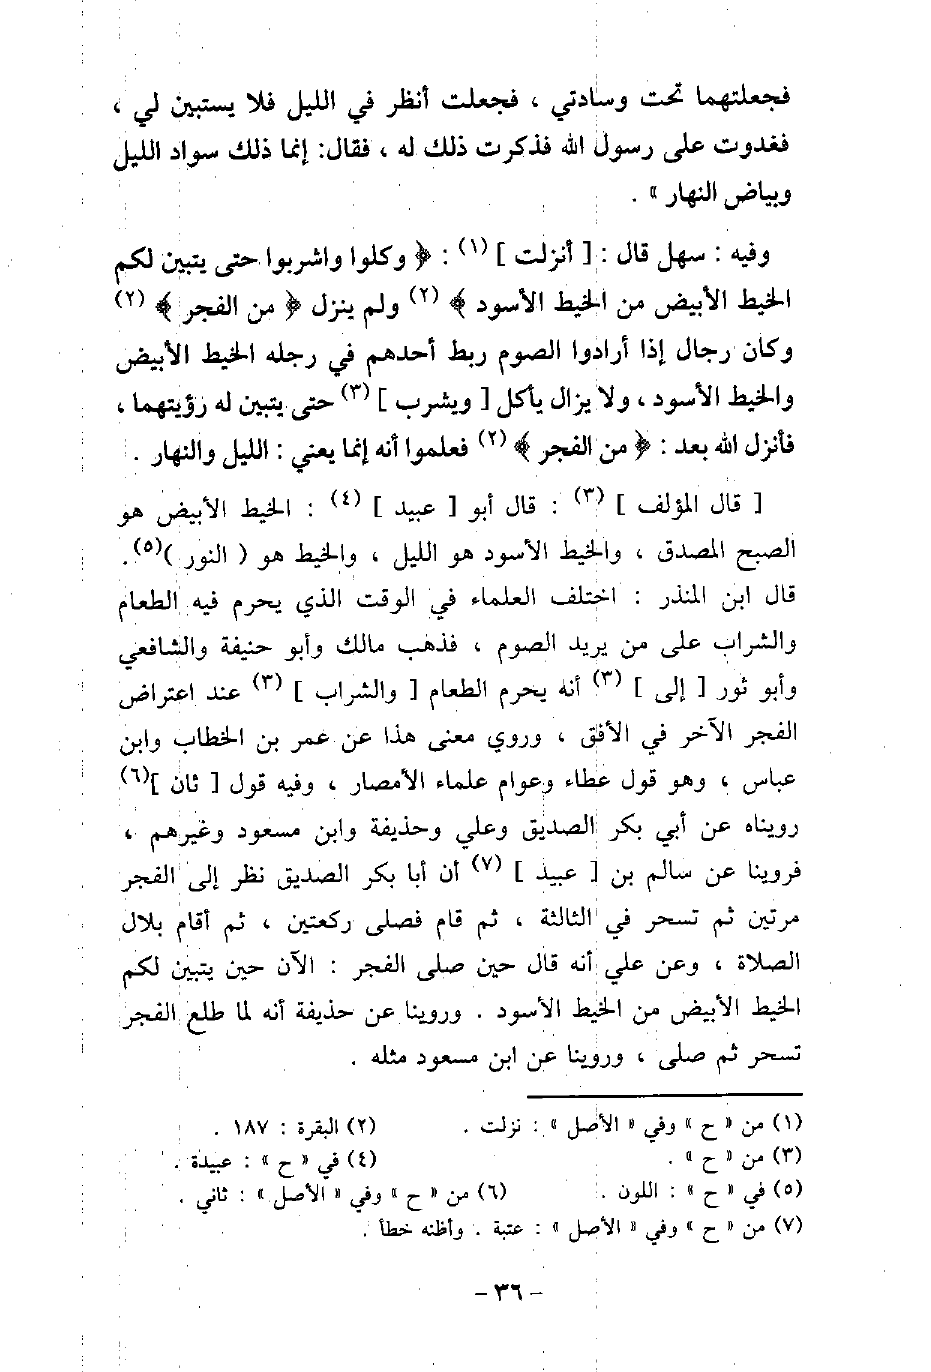 فجعلتهما تحت وسادتي ، فجعلت أنظر في الليل فلا يستبين لي ،
فغدوت على رسول الله فذكرت ذلك له ، فقال: إنما ذلك سواد الليل
وبياض النهار » .
وفيه : سهل قال : [ أنزلت ] (١) : ﴿ وكلوا واشربوا حتى يتبين لكم
الخيط الأبيض من الخيط الأسود ﴾ (٢) ولم ينزل ﴿ من الفجر ﴾ (٢)
وكان رجال إذا أرادوا الصوم ربط أحدهم في رجله الخيط الأبيض
والخيط الأسود ، ولا يزال يأكل [ ويشرب ] (٣) حتى يتبين له رؤيتهما ،
فأنزل الله بعد : ﴿ من الفجر ﴾ (٢) فعلموا أنه إنما يعني : الليل والنهار .
[ قال المؤلف ] (٣) : قال أبو [ عبيد ] (٤) : الخيط الأبيض هو
الصبح المصدق ، والخيط الأسود هو الليل ، والخيط هو ( النور )(٥).
قال ابن المنذر : اختلف العلماء في الوقت الذي يحرم فيه الطعام
والشراب على من يريد الصوم ، فذهب مالك وأبو حنيفة والشافعي
وأبو ثور [ إلى ] (٣) أنه يحرم الطعام [ والشراب ] (٣) عند اعتراض
الفجر الآخر في الأفق ، وروي معنى هذا عن عمر بن الخطاب وابن
عباس ، وهو قول عطاء وعوام علماء الأمصار ، وفيه قول [ ثان ](٦)
رويناه عن أبي بكر الصديق وعلي وحذيفة وابن مسعود وغيرهم ،
فروينا عن سالم بن [ عبيد ] (٧) أن أبا بكر الصديق نظر إلى الفجر
مرتين ثم تسحر في الثالثة ، ثم قام فصلى ركعتين ، ثم أقام بلال
الصلاة ، وعن علي أنه قال حين صلى الفجر : الآن حين يتبين لكم
الخيط الأبيض من الخيط الأسود . وروينا عن حذيفة أنه لما طلع الفجر
تسحر ثم صلى ، وروينا عن ابن مسعود مثله .
(١) من « ح » وفي « الأصل » : نزلت . (٢) البقرة : ١٨٧ .
(٣) من « ح » . (٤) في « ح » : عبيدة .
(٥) في « ح » : اللون . (٦) من « ح » وفي « الأصل » : ثاني .
(٧) من « ح » وفي « الأصل » : عتبة . وأظنه خطأ .
- ٣٦ -